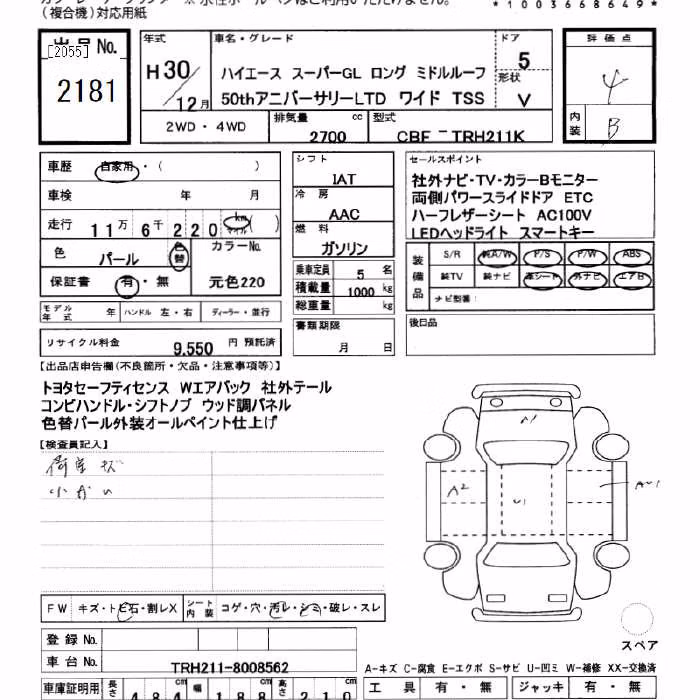 (複合機)対応用紙
*1003668649*
出品No.
[2055]
2181
年式
H30/12月
車名・グレード
ハイエース スーパーGL ロング ミドルルーフ
50thアニバーサリーLTD ワイド TSS
ドア
5
形状
V
評価点
4
内装
B
2WD・4WD
排気量 2700 cc
型式 CBF-TRH211K
車歴 自家用・( )
車検 年 月
走行 11万6千220 km マイル ( )
色 パール 色替 カラーNo.
保証書 有・無 元色220
シフト
IAT
冷房
AAC
燃料
ガソリン
乗車定員 5 名
積載量 1000 kg
総重量 kg
書類期限
月 日
セールスポイント
社外ナビ・TV・カラーBモニター
両側パワースライドドア ETC
ハーフレザーシート AC100V
LEDヘッドライト スマートキー
装備品
S/R 純A/W P/S P/W ABS
純TV 純ナビ 革シート 外ナビ エアB
ナビ型番:
後日品
モデル年式 年 ハンドル 左・右 ディーラー・並行
リサイクル料金 9,550 円 預託済
【出品店申告欄(不良箇所・欠品・注意事項等)】
トヨタセーフティセンス Wエアバック 社外テール
コンビハンドル・シフトノブ ウッド調パネル
色替パール外装オールペイント仕上げ
【検査員記入】
荷室キズ
小かい
A1
A2
U1
FW キズ・トビ石・割レX シート内装 コゲ・穴・汚レ・シミ・破レ・スレ
登録No.
車台No. TRH211-8008562
スペア
A-キズ C-腐食 E-エクボ S-サビ U-凹ミ W-補修 XX-交換済
車庫証明用 長さ 484 cm 幅 188 cm 高さ 210 cm
工具 有・無 ジャッキ 有・無